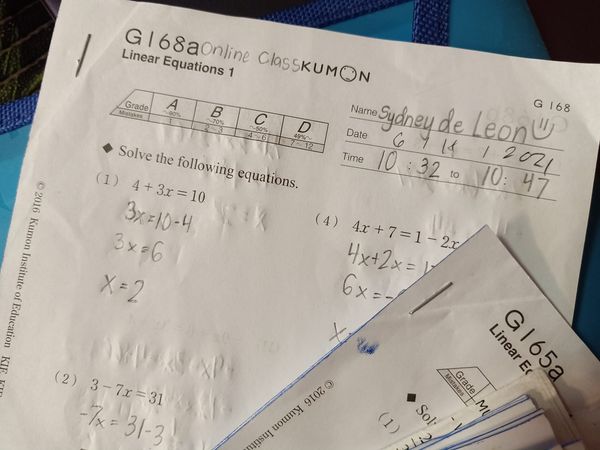 G168a Online Class KUMON
Linear Equations 1
G 168
Grade A B C D
Mistakes ~90% ~70% ~50% 49%~
1 2~3 4~6 7~12
Name Sydney de Leon
Date 6 / 14 / 2021
Time 10 : 32 to 10 : 47
◆ Solve the following equations.
(1) 4 + 3x = 10
3x=10-4
3x=6
x=2
(4) 4x + 7 = 1 − 2x
4x+2x=
6x=-
x
(2) 3 − 7x = 31
-7x = 31-3
© 2016 Kumon Institute of Education
G165a
Linear
Grade
Mistakes
■ Sol
(1)
© 2016 Kumon Instit